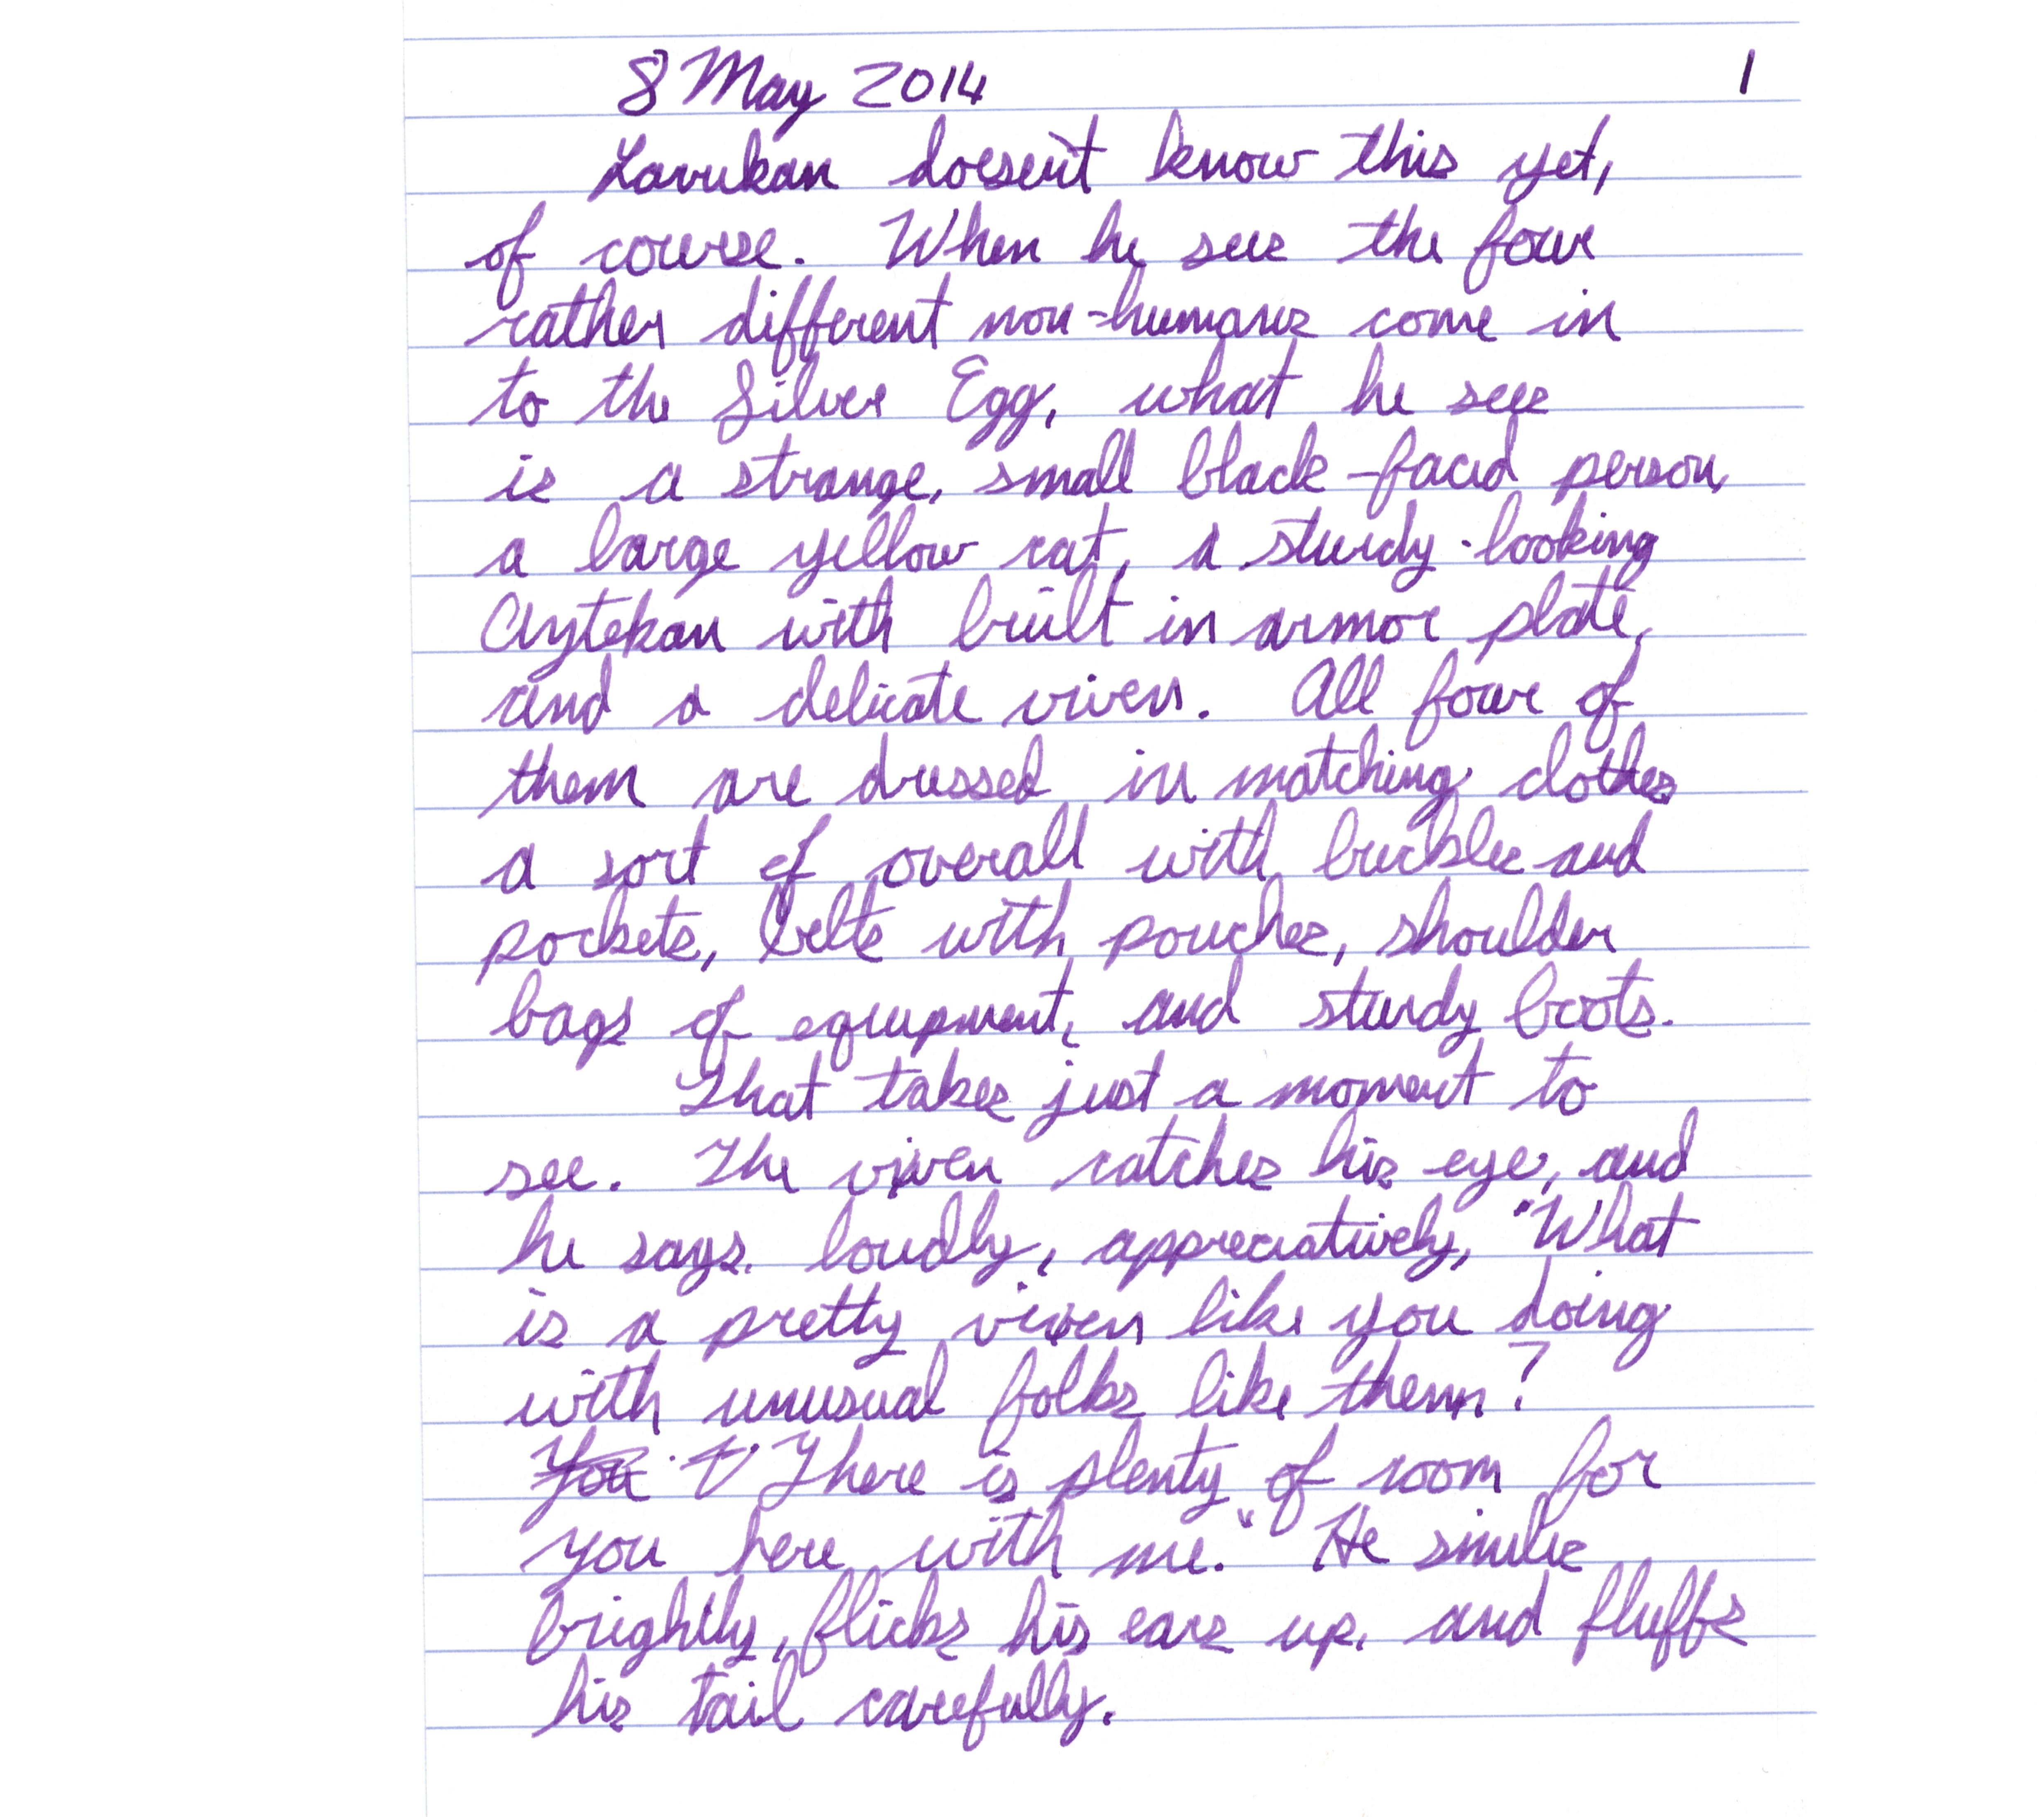 8 May 2014 1
Lavukan doesn't know this yet,
of course. When he sees the four
rather different non-humans come in
to the Silver Egg, what he sees
is a strange, small black-faced person,
a large yellow cat, a sturdy-looking
Aytekan with built in armor plate,
and a delicate viven. All four of
them are dressed in matching clothes
a sort of overall with buckles and
pockets, belts with pouches, shoulder
bags of equipment, and sturdy boots.
That takes just a moment to
see. The viven catches his eye, and
he says, loudly, appreciatively, "What
is a pretty viven like you doing
with unusual folks like them?
You There is plenty of room for
you here with me." He smiles
brightly, flicks his ears up, and fluffs
his tail carefully.